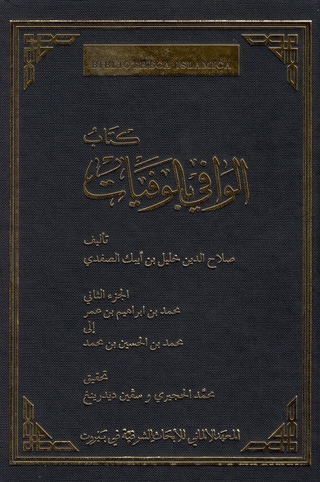 BIBLIOTHECA ISLAMICA
كتاب
الوافي بالوفيات
تأليف
صلاح الدين خليل بن أيبك الصفدي
الجزء الثاني
محمد بن ابراهيم بن عمر
إلى
محمد بن الحسين بن محمد
تحقيق
محمد الحجيري و سڤين ديدرينغ
المعهد الألماني للأبحاث الشرقية في بيروت